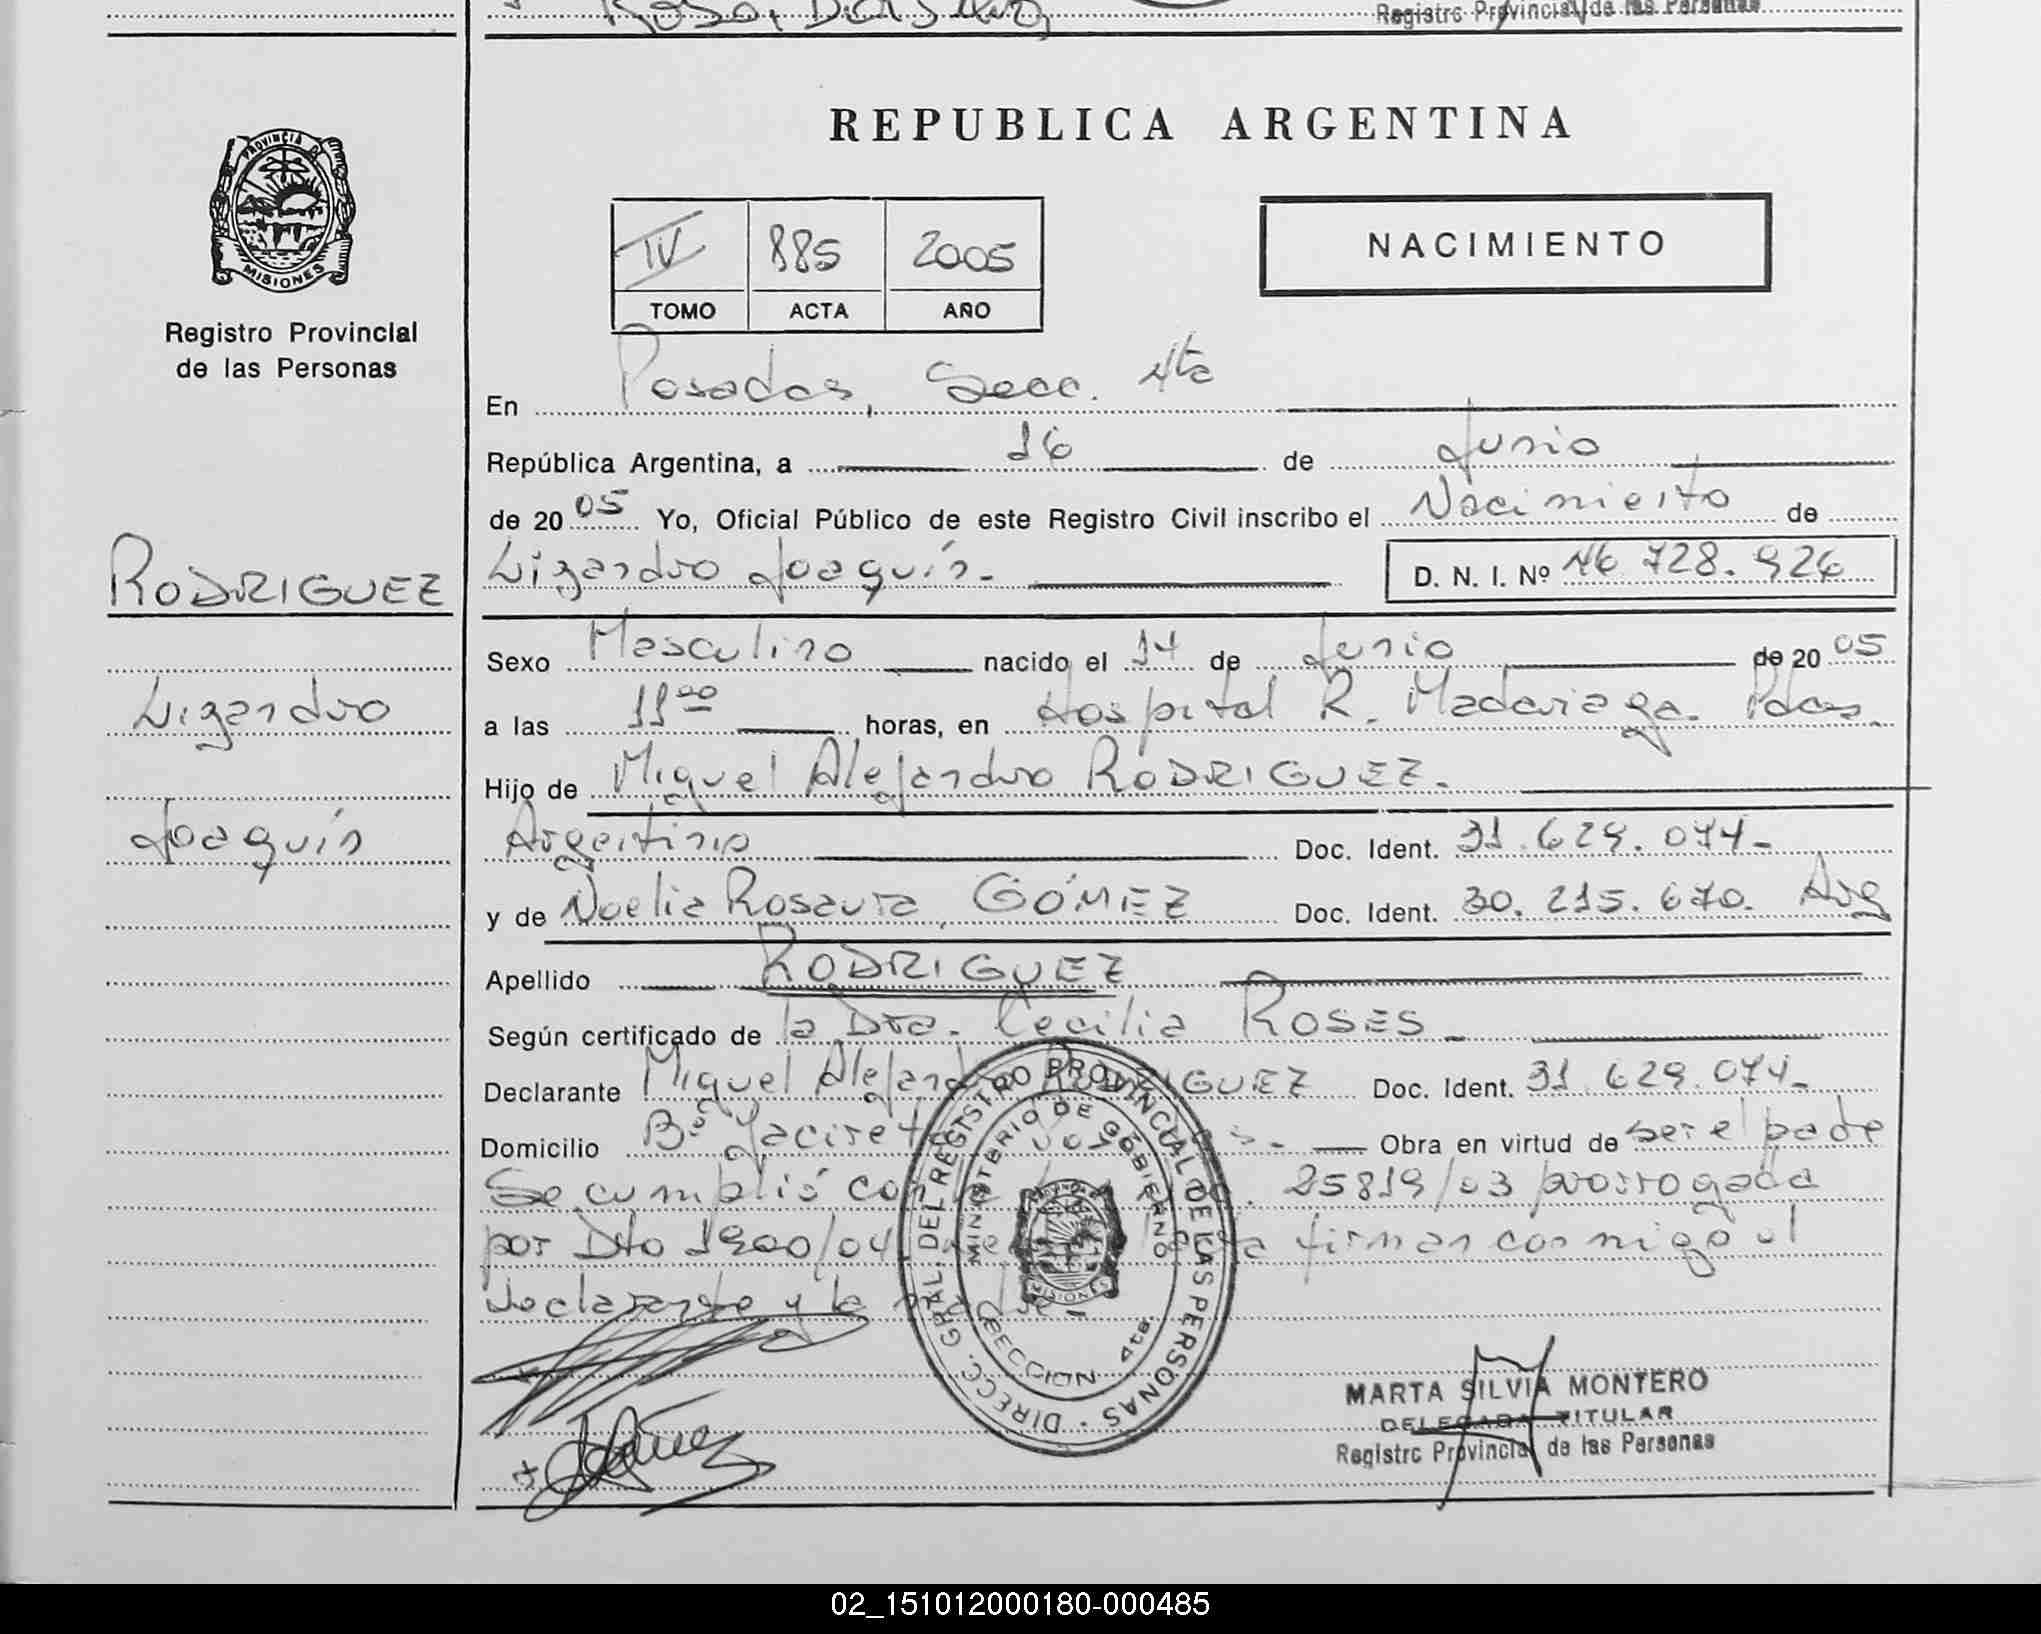 Rosa, Da Silva
Registro Provincial de las Personas
REPUBLICA ARGENTINA
PROVINCIA DE
MISIONES
Registro Provincial
de las Personas
IV 885 2005
TOMO ACTA AÑO
NACIMIENTO
En Posadas, Secc. 4ta
República Argentina, a 16 de Junio
de 2005 Yo, Oficial Público de este Registro Civil inscribo el Nacimiento de
Lizandro Joaquín.- D. N. I. Nº 46 728.926
RODRIGUEZ
Lizandro
Joaquín
Sexo Masculino nacido el 14 de Junio de 2005
a las 11 00 horas, en Hospital R. Madariaga. Pdas.
Hijo de Miguel Alejandro RODRIGUEZ.
Argentino Doc. Ident. 31.629.074-
y de Noelia Rosaura GÓMEZ Doc. Ident. 30.215.670. Arg
Apellido RODRIGUEZ
Según certificado de la Dra. Cecilia ROSES
Declarante Miguel Alejandro RODRIGUEZ Doc. Ident. 31.629.074-
Domicilio Bº Yaciretá Obra en virtud de ser el padre
Se cumplió con 25819/03 prorrogada
por Dto 1900/04 firman conmigo el
declarante y la madre-
DIRECC. GRAL. DEL REGISTRO PROVINCIAL DE LAS PERSONAS
MINISTERIO DE GOBIERNO
MISIONES
SECCION 4ta.
MARTA SILVIA MONTERO
DELEGADA TITULAR
Registro Provincial de las Personas
02_151012000180-000485